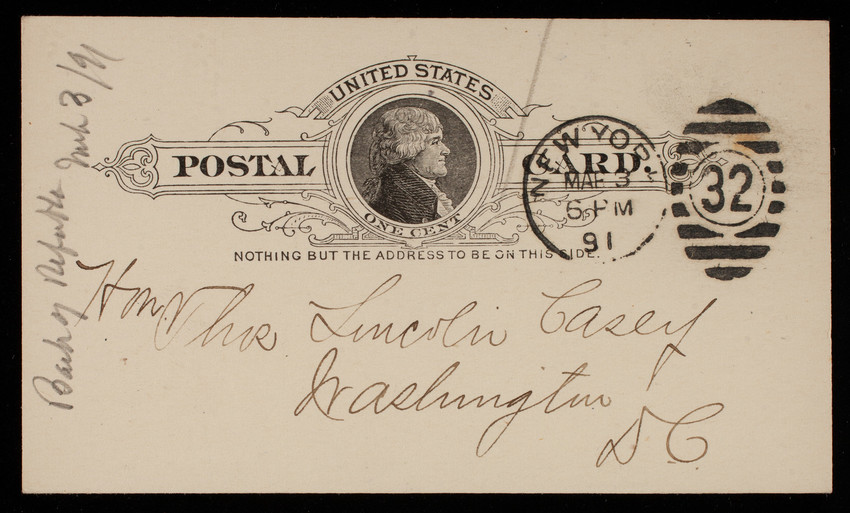 UNITED STATES
POSTAL CARD.
ONE CENT
NOTHING BUT THE ADDRESS TO BE ON THIS SIDE.
NEW YORK
MAR 3
6 PM
91
32
Hon Thos Lincoln Casey
Washington
D.C.
Bank of Republic Mch 3/91